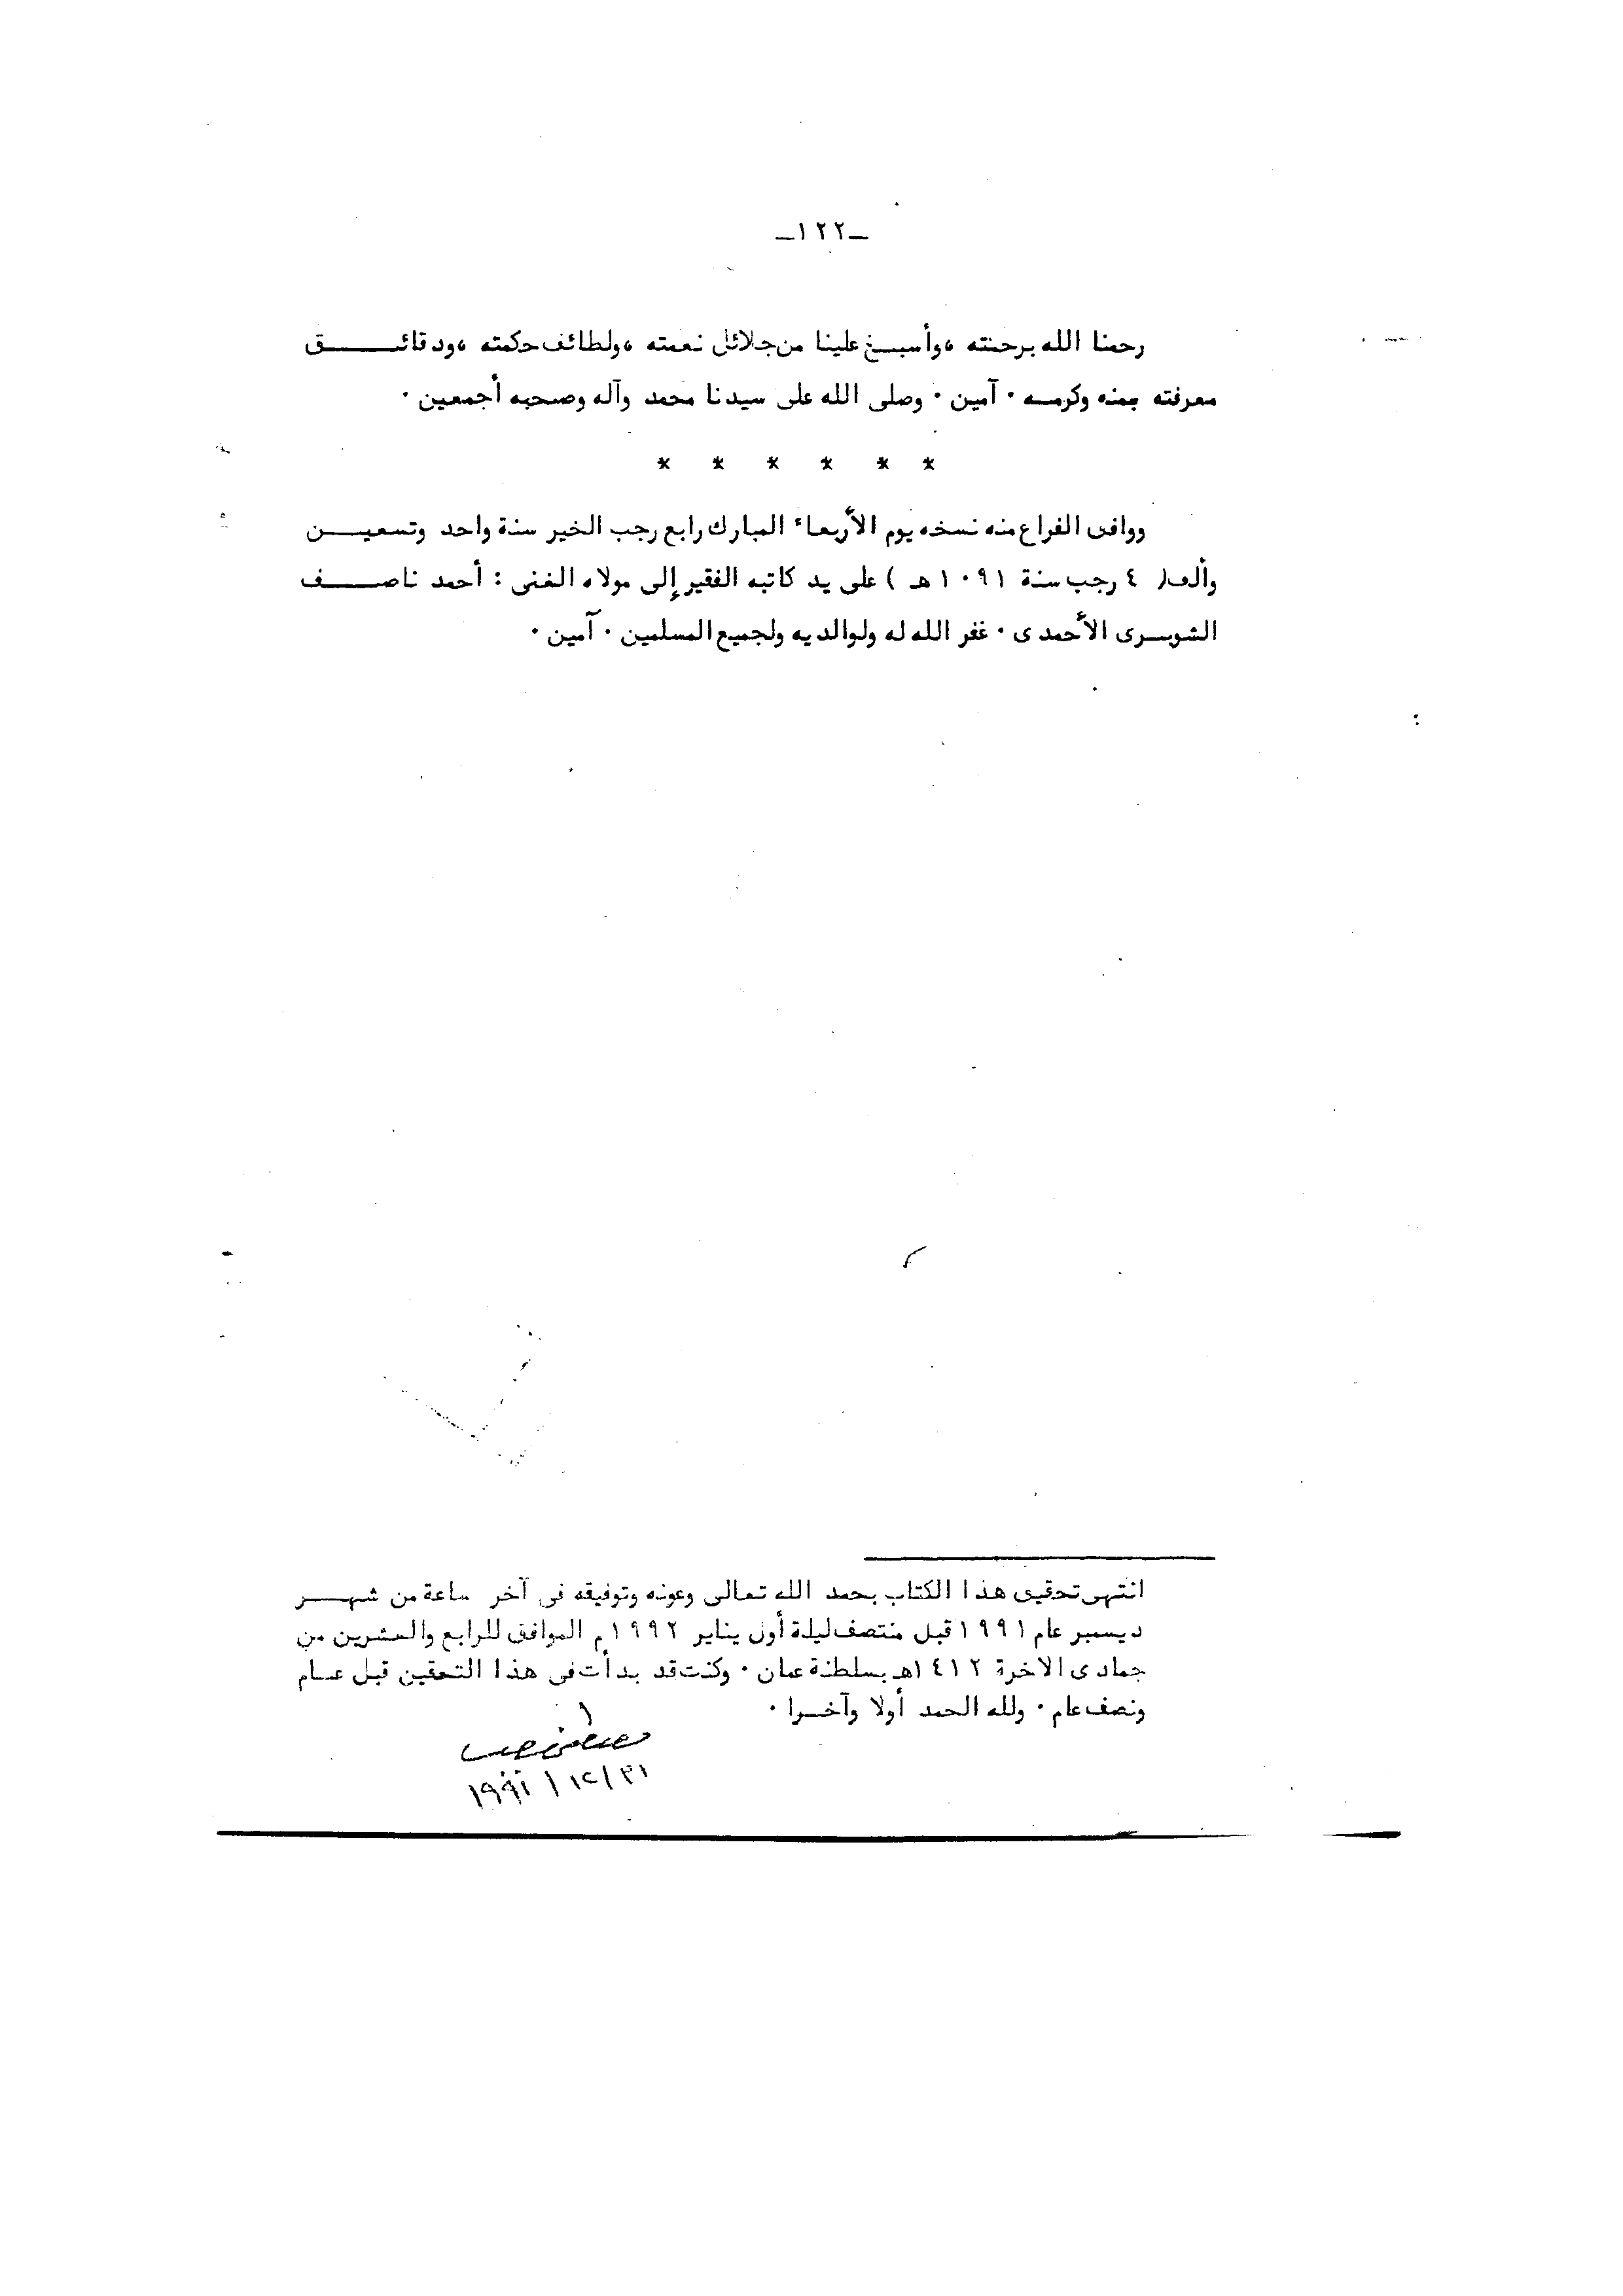 ـ١٢٢ـ
رحمنا الله برحمته ، وأسبغ علينا من جلائل نعمته ، ولطائف حكمته ، ودقائق
معرفته بمنه وكرمه . آمين . وصلى الله على سيدنا محمد وآله وصحبه أجمعين .
* * * * * *
ووافى الفراغ منه نسخه يوم الأربعاء المبارك رابع رجب الخير سنة واحد وتسعين
وألف ( ٤ رجب سنة ١٠٩١ هـ ) على يد كاتبه الفقير إلى مولاه الغنى : أحمد ناصف
الشوبرى الأحمدى . غفر الله له ولوالديه ولجميع المسلمين . آمين .
انتهى تحقيق هذا الكتاب بحمد الله تعالى وعونه وتوفيقه فى آخر ساعة من شهر
ديسمبر عام ١٩٩١ قبل منتصف ليلة أول يناير ١٩٩٢م الموافق للرابع والعشرين من
جمادى الاخرة ١٤١٢هـ بسلطنة عمان . وكنت قد بدأت فى هذا التحقيق قبل عام
ونصف عام . ولله الحمد أولا وآخرا .
١٩٩١/١٢/٣١